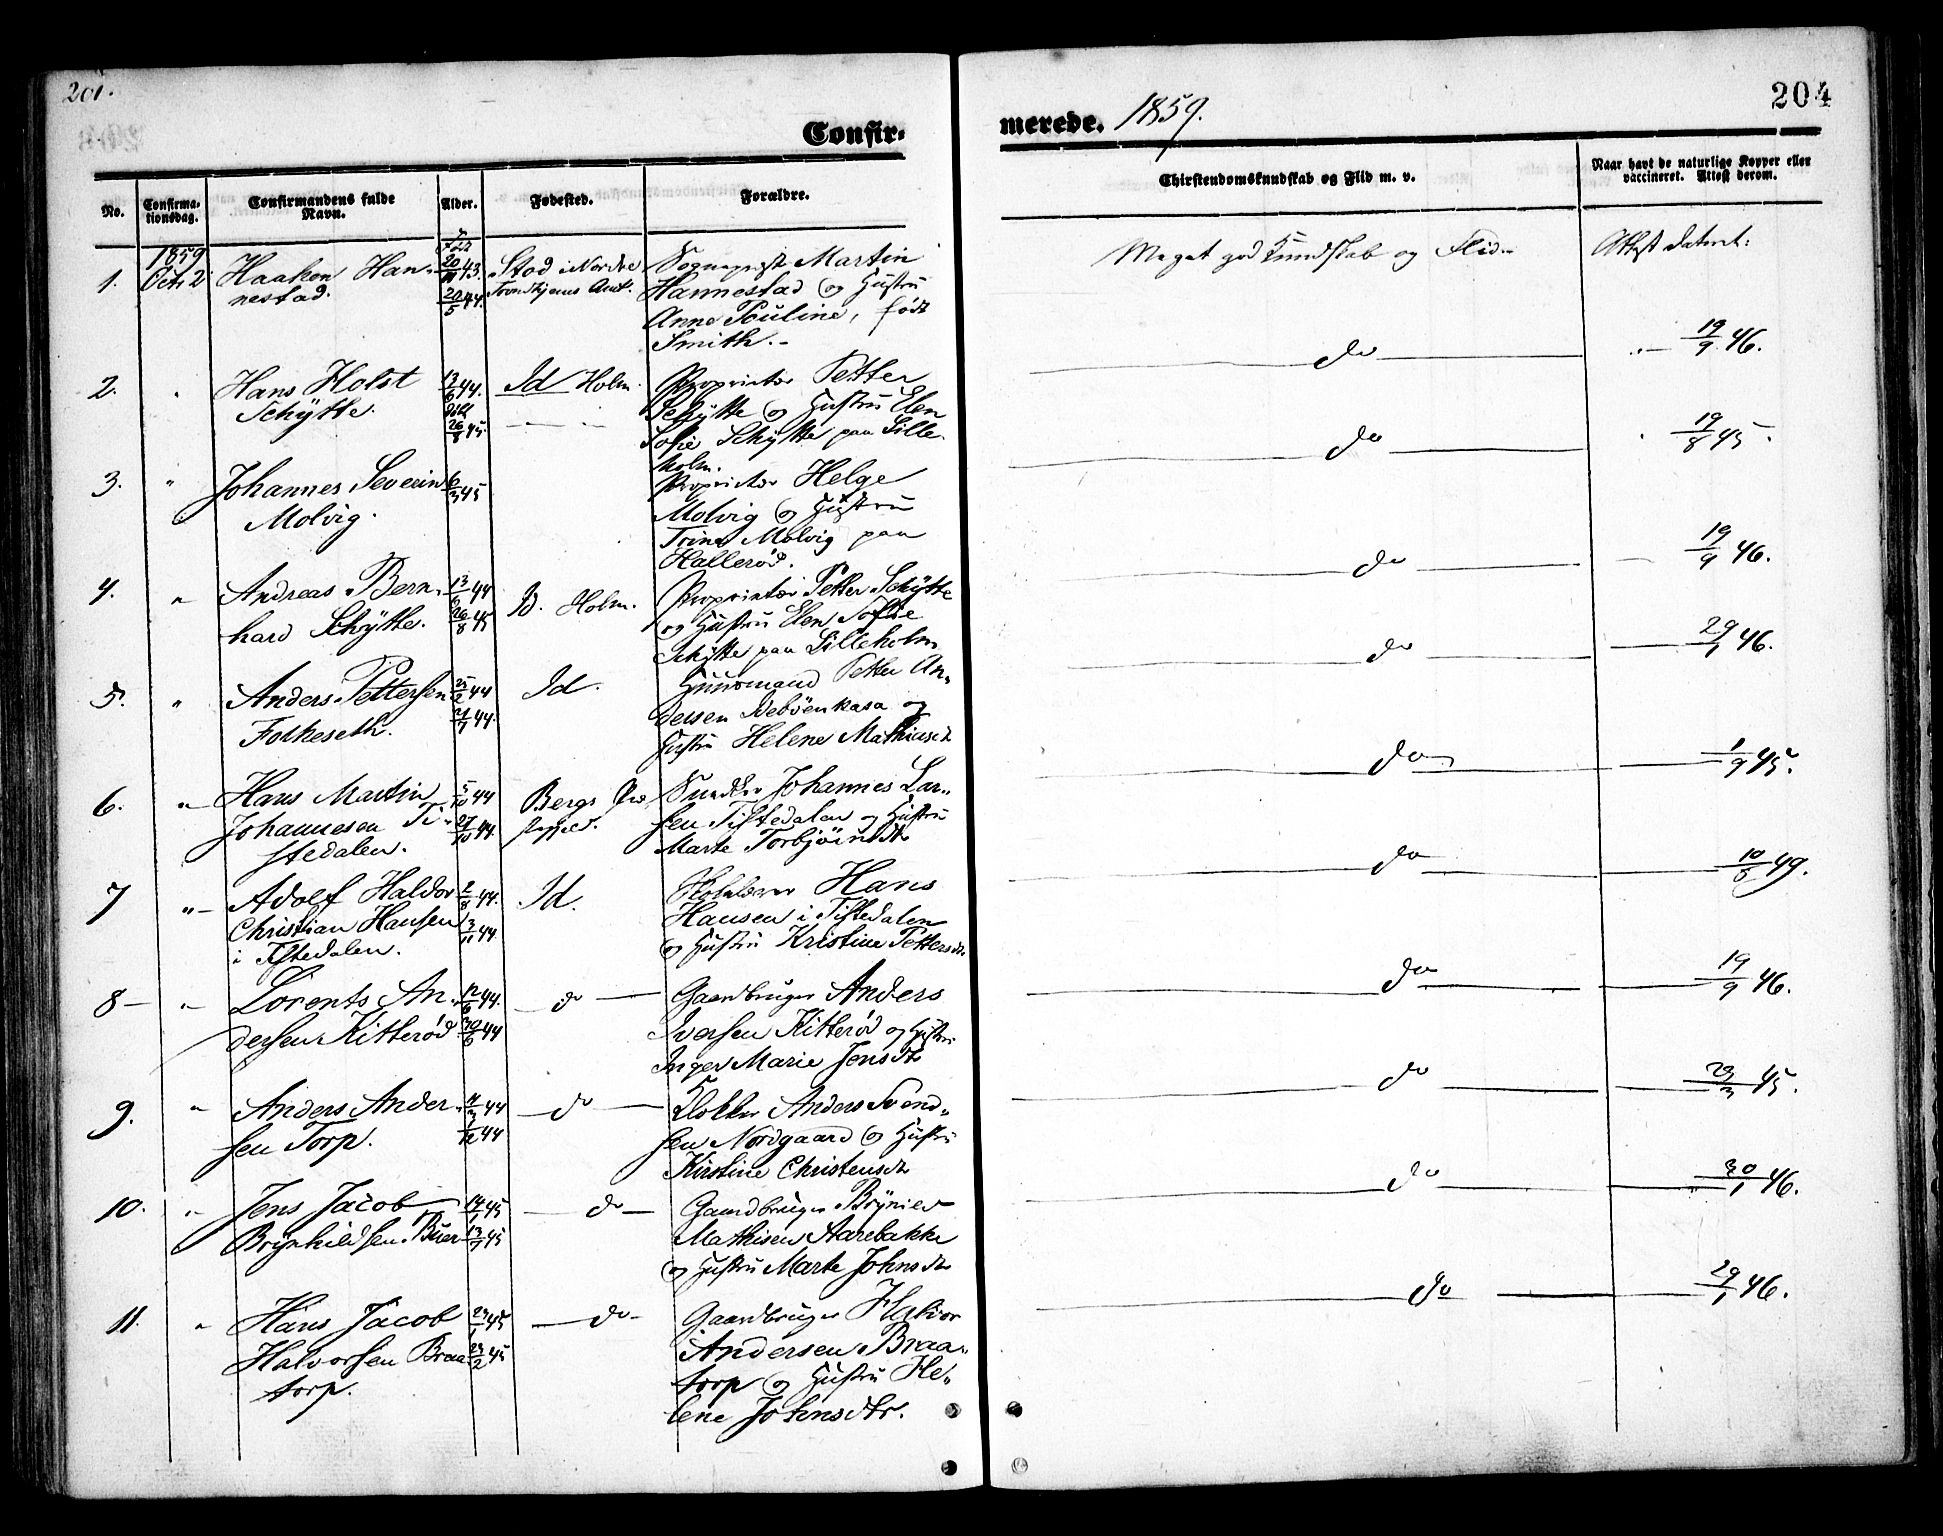 201.
204
Confir-
merede. 1859.
No.
Confirma-
tionsdag.
Confirmandens fulde
Navn.
Alder.
Fødested.
Forældre.
Chirstendomskundskab og Flid m. v.
Naar havt de naturlige Kopper eller
vaccineret. Attest derom.
1859
1. Oct. 2 Haakon Han-
nestad.
20/5 44.
Stod i Nordre
Trondhjems Amt.
Sogneprest Martin
Hannestad og Hustru
Anne Pauline, født
Smith.
Meget god Kundskab og Flid
Attest dateret:
19/9 46.
2. " Hans Holst
Schÿtte.
13/6 44.
døbt
26/8 45.
Id Holm.
Proprietær Petter
Schÿtte og Hustru Elen
Sofie Schÿtte paa Lille-
holm.
do
19/8 45.
3. " Johannes Severin
Molvig.
6/3 45
Proprietær Helge
Molvig og Hustru
Trine Molvig paa
Hallerød.
do
19/9 46.
4. " Andreas Bern-
hard Schÿtte.
13/6 44
26/8 45
Id. Holm.
Proprietær Petter Schÿtte
og Hustru Elen Sofie
Schÿtte paa Lilleholm
do
29/1 46.
5. " Anders Pettersen
Folkeseth.
25/2 44
21/7 44.
Id.
Huusmand Petter An-
dersen Idebøenkasa og
Hustru Helene Mathiasdt
do
1/9 45.
6. " Hans Martin
Johannesen Ti-
stedalen.
5/10 44
27/10 44.
Bergs Præ-
stegjeld.
Snedker Johannes Lar-
sen Tistedalen og Hustru
Marte Torbjörnsdtr
do
49.
7 " Adolf Haldor
Christian Hansen
i Tistedalen.
2/8 44.
3/11 44
Id.
Skolelærer Hans
Hansen i Tistedalen
og Hustru Kristine Pettersdtr
do
19/9 46.
8 " Lorents An-
dersen Kitterød
12/6 44.
30/6 44
do
Gaardbruger Anders
Iversen Kitterød og Hustru
Inger Marie Jensdtr
do
23/3 45.
9. " Anders Ander-
sen Torp.
44
1/12 44
do
Klokker Anders Svend-
sen Nordgaard og Hustru
Kirstine Christensdtr
do
30/1 46.
10. " Jens Jacob
Brynhildsen Buer
14/1 45
45
do
Gaardbruger Brÿnild
Mathisen Aarebakke
og Hustru Marte Johnsdtr
do
29/1 46.
11. " Hans Jacob
Halvorsen Braa-
torp.
23/1 45
23/2 45
do
Gaardbruger Halvor
Andersen Braa-
torp og Hustru He-
lene Johnsdtr.